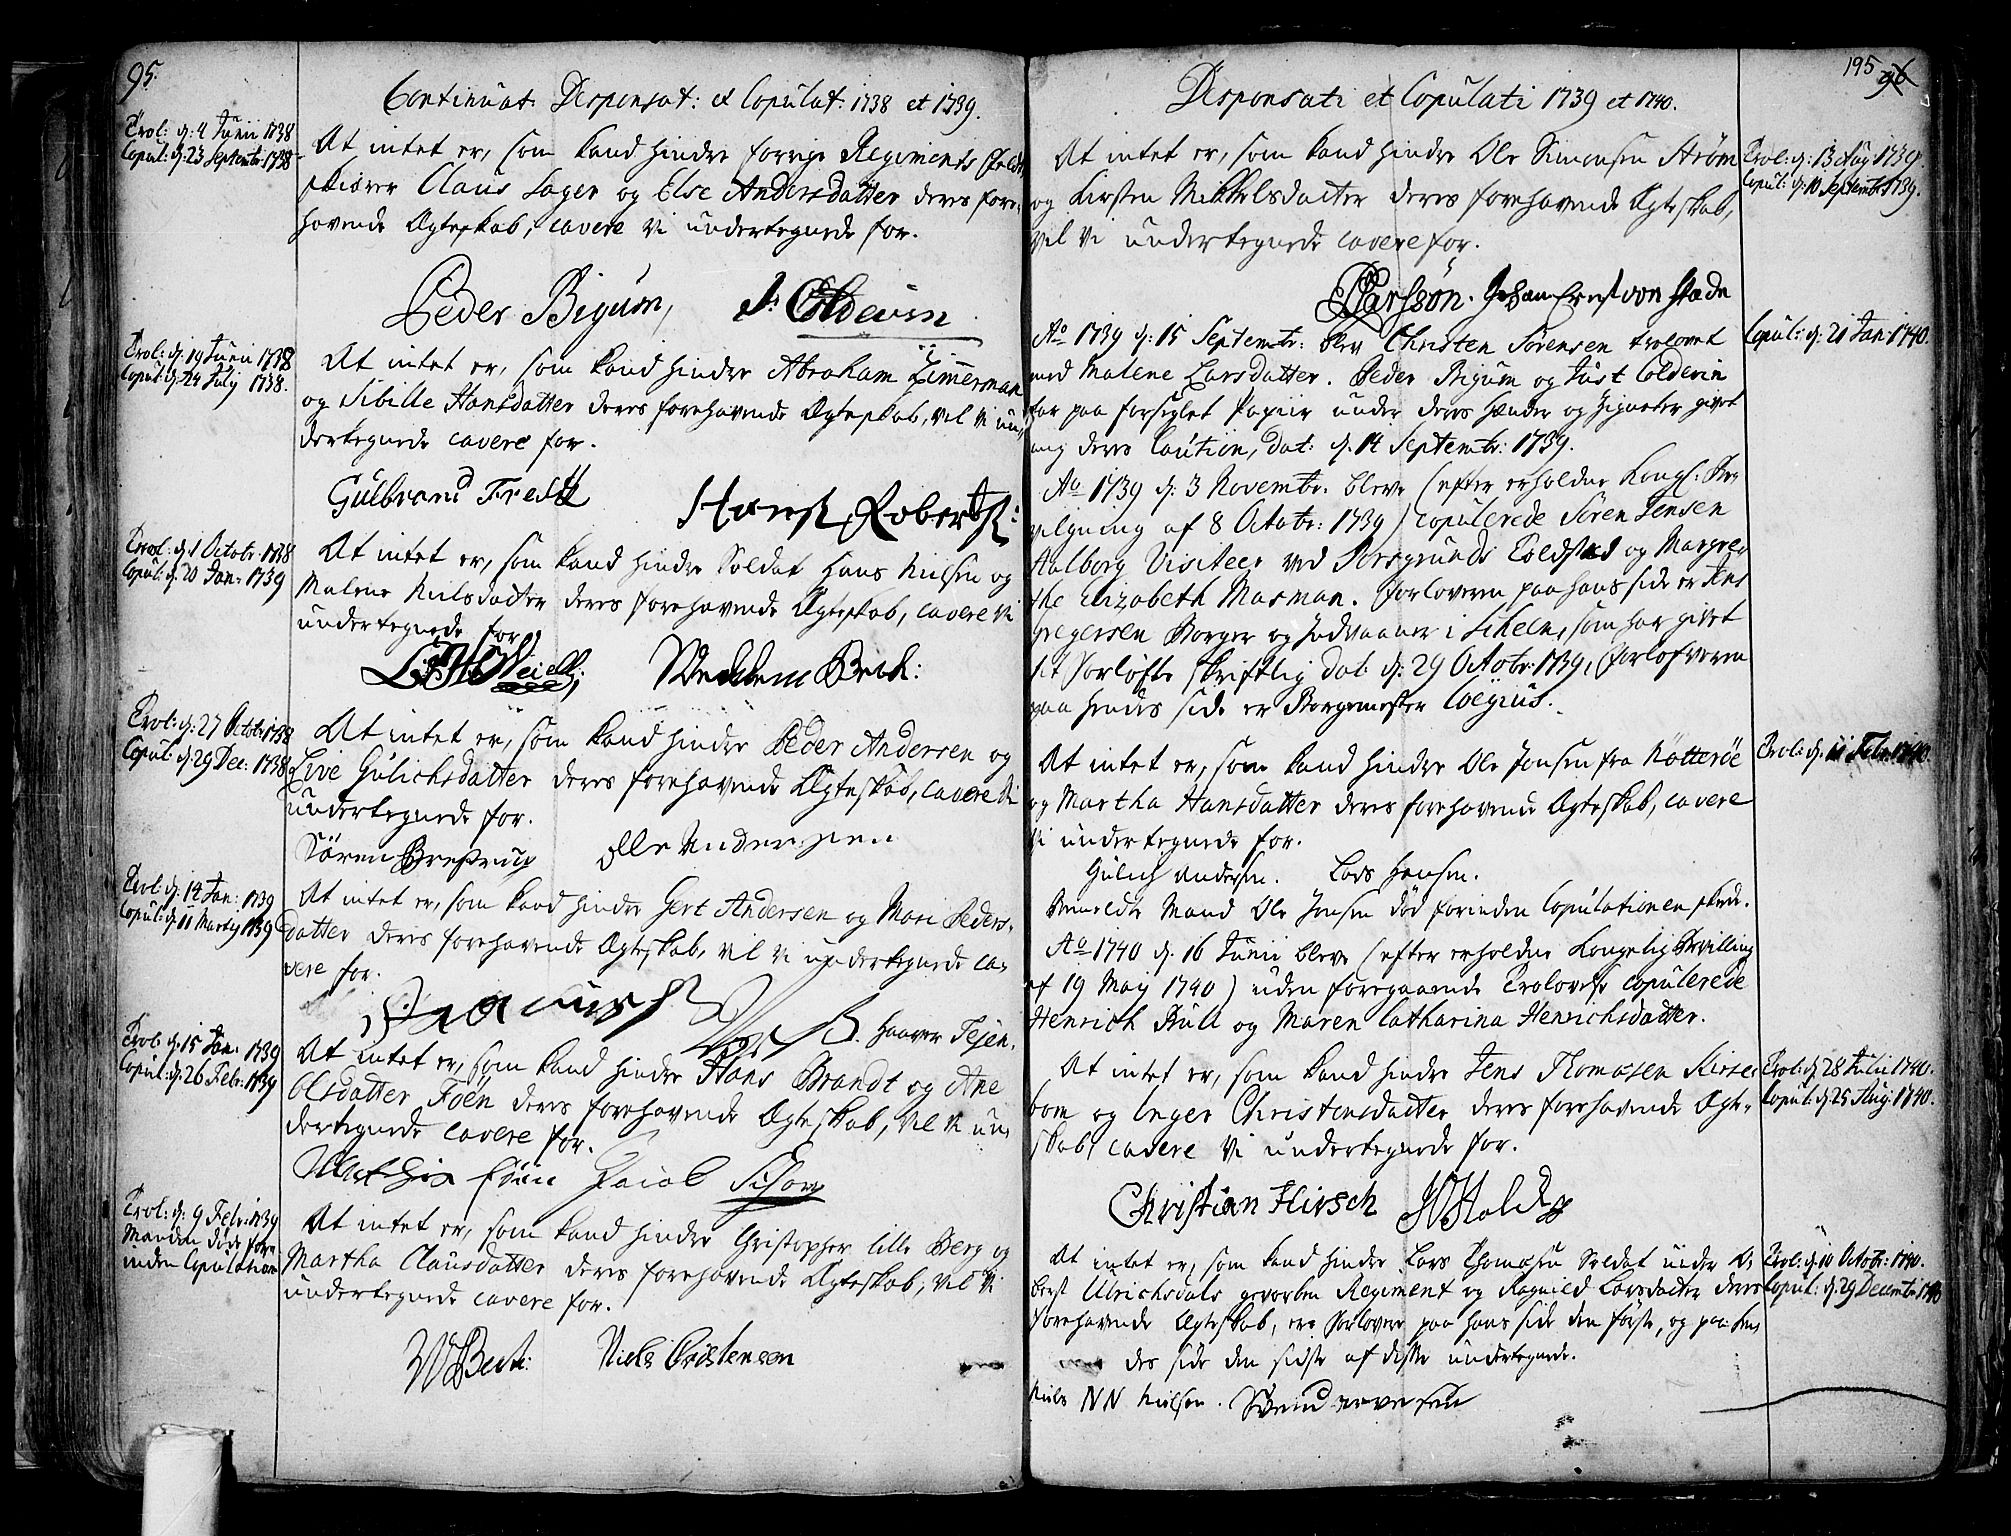 95.
Continuat: Desponsat: et Copulat: 1738 et 1739.
Trol: d: 4 Junii 1738
Copul: d: 23 Septembr: 1738
At intet er, som kand hindre forrige Regiments
skiærer Claus Lager og Else Andersdatter deres fore-
havende Ægteskab, cavere vi undertegnede for.
Peder Bigum, J: Coldevin
Trol: d: 19 Junii 1738
Copul: d: 24 July 1738.
At intet er, som kand hindre Abraham Zimmerman
og Sibille Hansdatter deres forehavende Ægteskab, vil vi un-
dertegnede cavere for.
Gulbrand Hans Roberts:
Trol: d: 1 Octobr: 1738
Copul: d: 20 Jan: 1739
At intet er, som kand hindre Soldat Hans Nielsen og
Malene Nielsdatter deres forehavende Ægteskab, cavere vi
undertegnede for
Beck:
Trol: d: 27 Octobr: 1738
Copul: d: 29 Dec: 1738
At intet er, som kand hindre Peder Andersen og
Live Gulichsdatter deres forehavende Ægteskab, cavere vi
undertegnede for.
Sören Brestrup Olle Andersen
Trol: d: 14 Jan: 1739
Copul: d: 11 Martij 1739
At intet er, som kand hindre Gert Andersen og Mari Peders-
datter deres forehavende Ægteskab, vil vi undertegnede ca-
vere for.
Haaver Tejen.
Trol: d: 15 Jan: 1739
Copul: d: 26 Febr: 1739
At intet er, som kand hindre Hans Brandt og Ane
Olsdatter Föen deres forehavende Ægteskab, vil vi un-
dertegnede cavere for.
Mathis Föen Jacob
Trol: d: 9 Febr: 1739
Manden døde for-
inden Copulation
At intet er, som kand hindre Christopher lille Berg og
Martha Clausdatter deres forehavende Ægteskab, vil vi
undertegnede cavere for.
WBeck: Niels Cristensen
195 96
Desponsati et Copulati 1739 et 1740.
Trol: d: 13 Aug 1739.
Copul: d: 10 Septembr 1739.
At intet er, som kand hindre Ole Simonsen Ström
og Kirsten Mikkelsdatter deres forehavende Ægteskab,
vil vi undertegnede cavere for.
PLarssön. Johan Ernst von Stade
Copul: d: 21 Jan: 1740.
Ao 1739 d: 15 Septembr: blev Christen Sörensen trolovet
med Malene Larsdatter. Peder Bigum og Just Coldevin
har paa forseglet Papiir under deres Hænder og Zigneter givet
mig deres Caution, dat: d: 14 Septembr: 1739.
Ao 1739 d: 3 Novembr: bleve (efter erholdne Kongl: Be-
vilgning af 8 Octobr: 1739) copulerede Sören Jensen
Aalborg Visiteer ved Porsgrunds Toldsted og Margre-
the Elizabeth Masman. Forloveren paa hans side er Jens
Gregersen Borger og Indvaaner i Scheen, som har givet
sit Forløfte skriftlig dat: d: 29 Octobr: 1739, Forlofveren
paa hendes side er Borgemester Coëyius.
Trol: d: 11 Febr: 1740.
At intet er, som kand hindre Ole Jonsen fra Nötteröe
og Martha Hansdatter deres forehavende Ægteskab, cavere
vi undertegnede for.
Gulich Andersen. Lars Hansen.
Bemeldte Mand Ole Jonsen død forinden Copulationen skede.
Ao 1740 d: 16 Junii bleve (efter erholdne Kongelig Bevilling
af 19 May 1740) uden foregaaende Trolovelse copulerede
Henrich Bull og Maren Catharina Henrichsdatter.
Trol: d: 28 Julii 1740.
Copul: d: 25 Aug: 1740.
At intet er, som kand hindre Jens Thomasen Kirse-
bom og Inger Christensdatter deres forehavende Ægte-
skab, cavere vi undertegnede for.
Christian Hirsch WHolst
Trol: d: 10 Octobr: 1740.
Copul: d: 29 Decembr 1740
At intet er, som kand hindre Lars Thomasen Soldat under O-
berst Ulrichsdals gevorben Regiment og Ragnild Larsdatter deres
forehavende Ægteskab, ere Forlover paa hans side den første, og paa hen-
des side den sidste af disse undertegnede.
Niels NN Nielsen. Svend